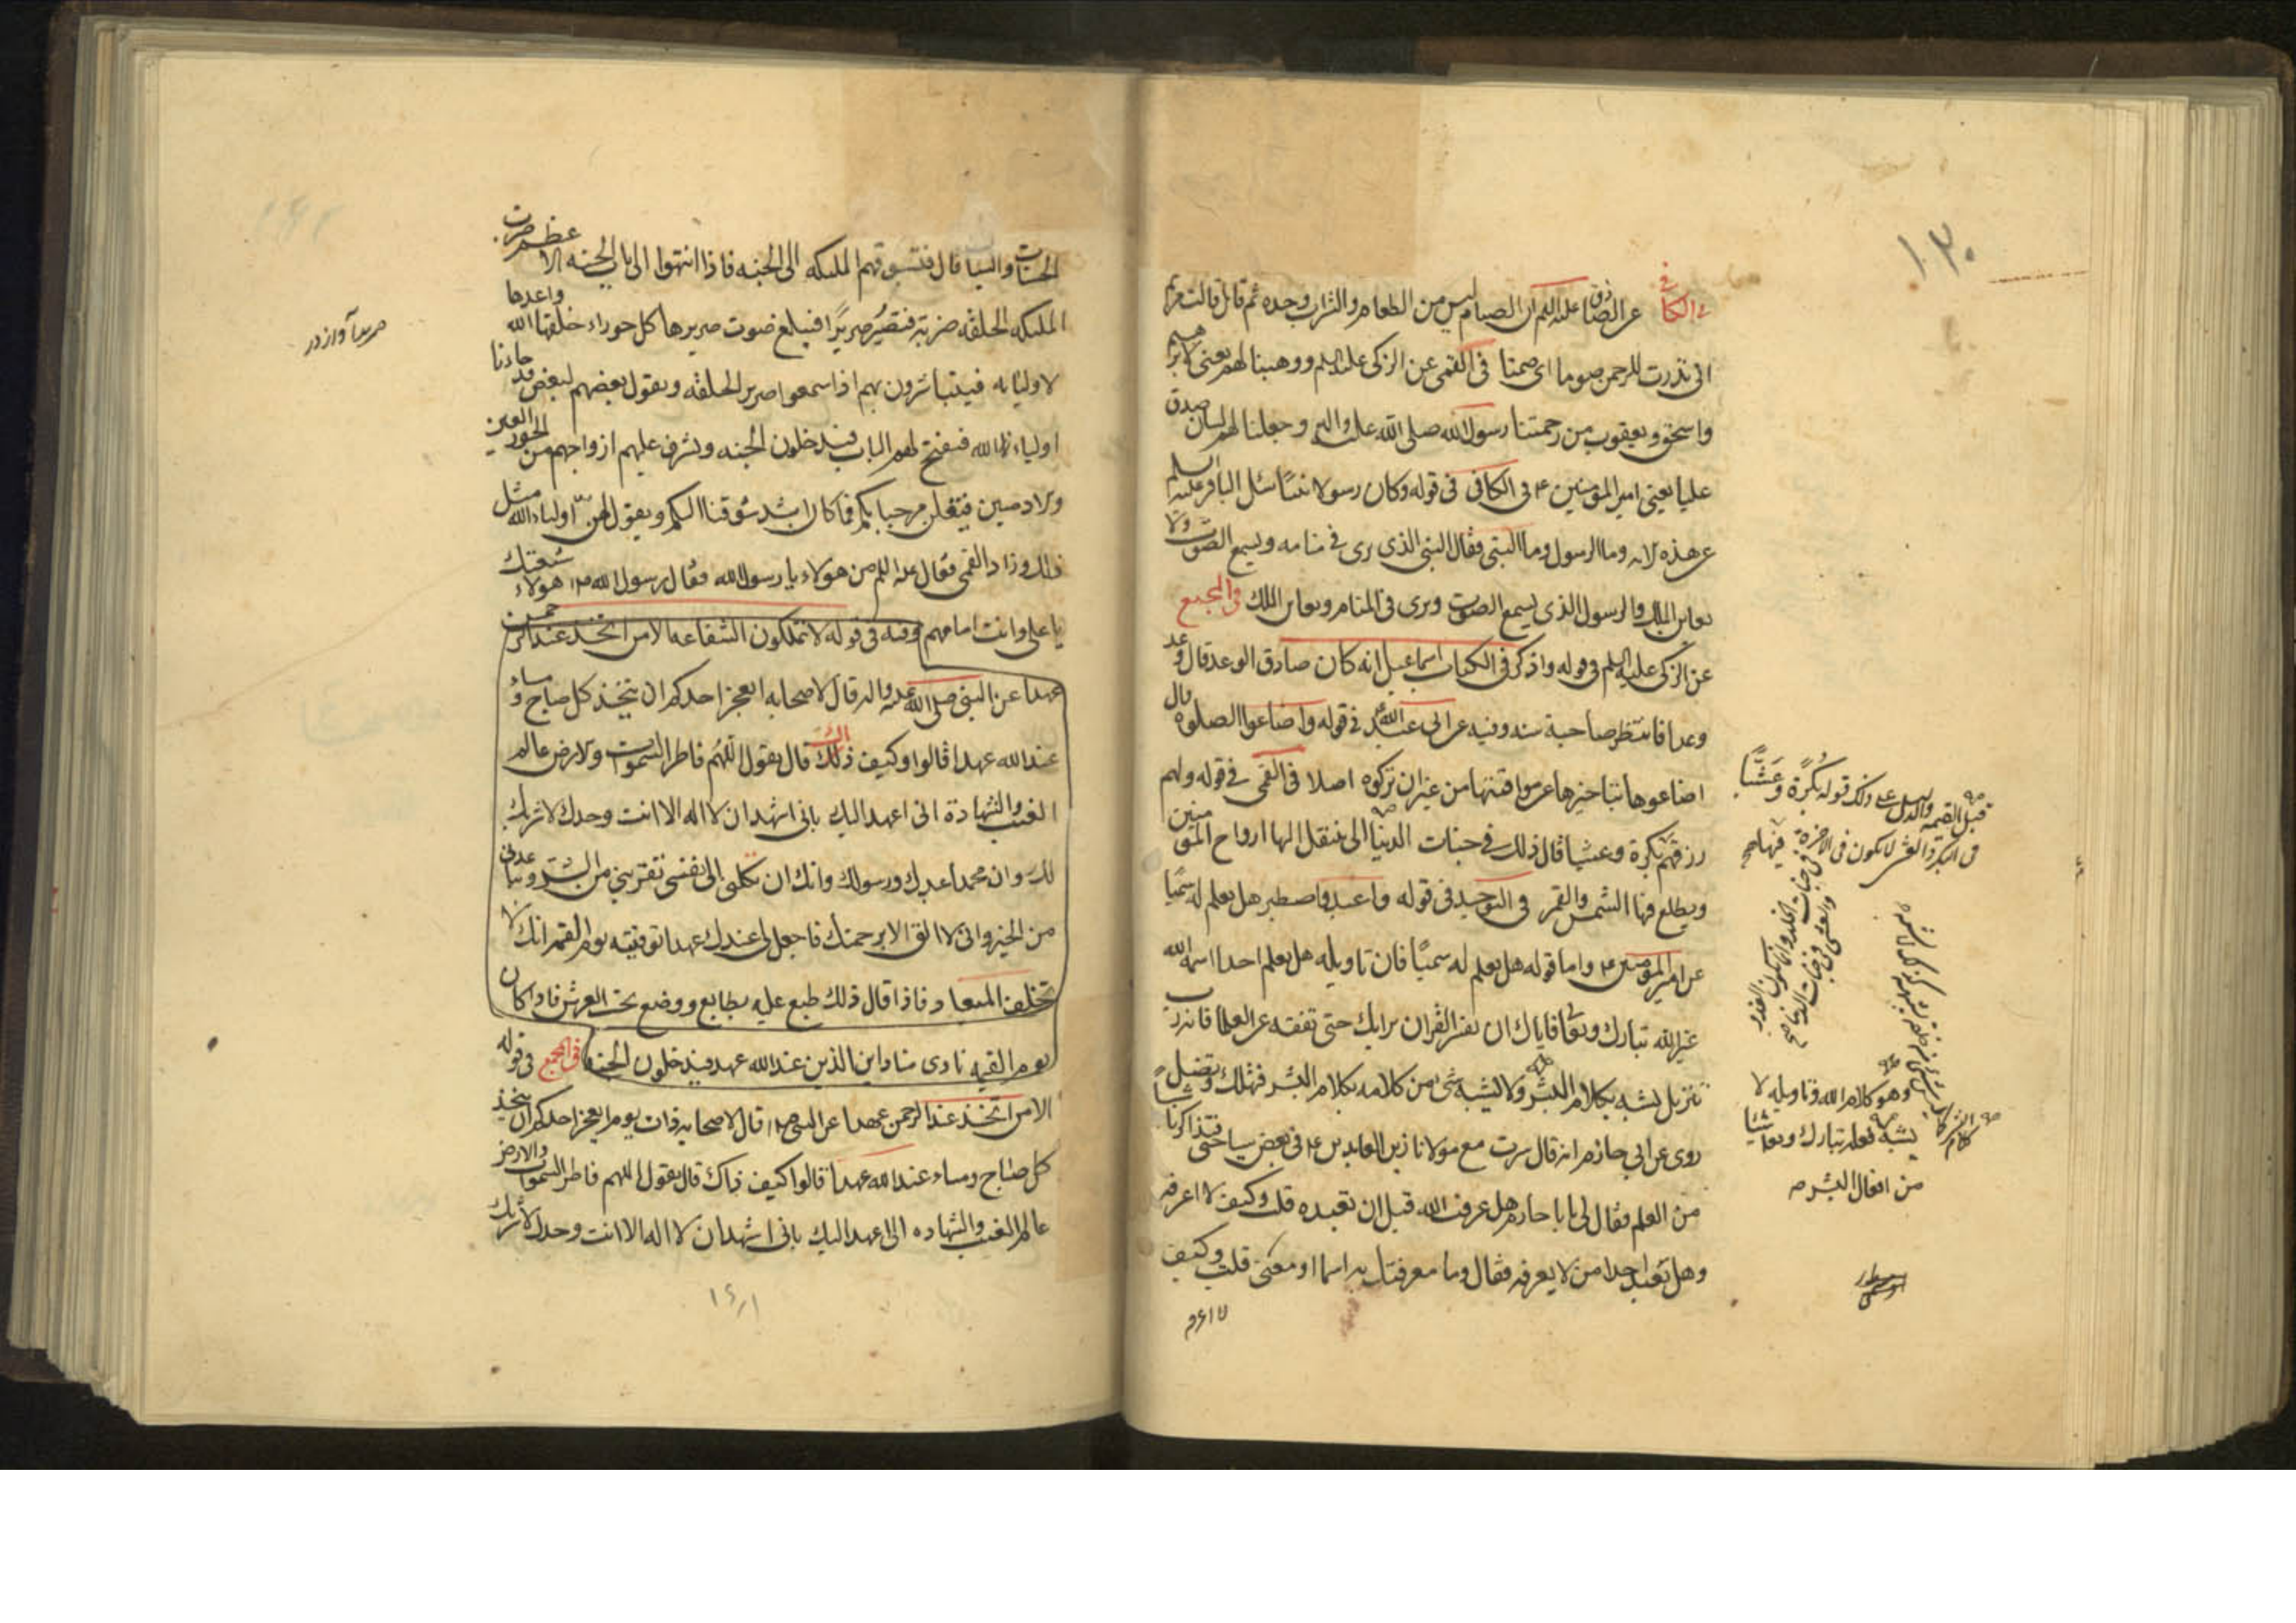 ١٣٠
فى الكافى عن الصادق عليه السلم ان الصيام ليس من الطعام والشراب وحده ثم قال قالت مريم
انى نذرت للرحمن صوما اى صمتا فى القمى عن الزكى عليه السلم ووهبنا لهم يعنى لابرهيم
واسحق ويعقوب من رحمتنا رسول الله صلى الله عليه واله وجعلنا لهم لسان صدق
عليا يعنى امير المؤمنين ع فى الكافى فى قوله وكان رسولا نبيا سئل الباقر عليه السلم
عن هذه الاية وما الرسول وما النبى فقال النبى الذى يرى فى منامه ويسمع الصوت ولا
يعاين الملك والرسول الذى يسمع الصوت ويرى فى المنام ويعاين الملك فى المجمع
عن الزكى عليه السلم فى قوله واذكر فى الكتاب اسماعيل انه كان صادق الوعد قال وعد
وعدا فانتظر صاحبة سنه وفيه عن ابى عبد الله فى قوله واضاعوا الصلوة قال
اضاعوها بتاخيرها عن مواقيتها من غير ان تركوه اصلا فى القمى فى قوله ولهم
رزقهم بكرة وعشيا قال ذلك فى جنات الدنيا التى ينتقل اليها ارواح المؤمنين
ويطلع فيها الشمس والقمر فى التوحيد فى قوله واعبد واصطبر هل يعلم له سميا
عن امير المؤمنين ع واما قوله هل يعلم له سميا فان تاويله هل يعلم احدا اسمه الله
غير الله تبارك وتعا فاياك ان تفسر القران برايك حتى تفقه عن العلما فانه رب
تنزيل يشبه بكلام البشر ولا يشبه شئ من كلامه بكلام البشر فتهلك وتضل
روى عن ابى حازم انه قال سرت مع مولانا زين العابدين ع فى بعض سياحتى فتذاكرنا شيأ
من العلم فقال لى يا با حازم هل عرفت الله قبل ان تعبده قلت وكيف لا اعرفه
وهل يعبد احدا من لا يعرفه فقال وما معرفتك به اسما او معنى قلت وكيف
لا اعرفه
قبل القيمة والدليل على ذلك قوله بكرة وعشيا
وهو كلام الله وتاويله لا
يشبه فعله تبارك وتعا شيئا
من افعال البشر صح
الحسنات والسيئات قال فتسوقهم الملئكه الى الجنه فاذا انتهوا الى باب الجنه الاعظم ضربت
الملئكه الحلقه ضربة فتصير صريرا فيبلغ صوت صريرها كل حوراء خلقها الله واعدها
لاوليائه فيتباشرون بهم اذا سمعوا صرير الحلقه ويقول بعضهم لبعض قد جاءنا
اولياء الله فيفتح لهم الباب فيدخلون الجنه ويشرف عليهم ازواجهم من الحور العين
والادميين فيقلن مرحبا بكم فما كان اشد شوقنا اليكم ويقول لهن اولياء الله مثل
ذلك وزاد القمى فقال عليه السلم من هولاء يا رسول الله فقال رسول الله ص هولاء شيعتك
يا على وانت امامهم وفيه فى قوله لا تملكون الشفاعه الا من اتخذ عند الرحمن
عهدا عن النبى صلى الله عليه واله قال لاصحابه ايعجز احدكم ان يتخذ كل صباح ومساء
عند الله عهدا قالوا وكيف ذلك قال يقول اللهم فاطر السموات والارض عالم
الغيب والشهادة انى اعهد اليك بانى اشهد ان لا اله الا انت وحدك لا شريك
لك وان محمدا عبدك ورسولك وانك ان تكلنى الى نفسى تقربنى من الشر وتباعدنى
من الخير وانى لا اثق الا برحمتك فاجعل لى عندك عهدا توفنيه يوم القيمة انك لا
تخلف الميعاد فاذا قال ذلك طبع عليه بطابع ووضع تحت العرش فاذا كان
يوم القيمه نادى مناد اين الذين عند الله عهد فيدخلون الجنه فى المجمع فى قوله
الا من اتخذ عند الرحمن عهدا عن النبى ص قال لاصحابه ذات يوم ايعجز احدكم ان يتخذ
كل صباح ومساء عند الله عهدا قالوا كيف ذاك قال يقول اللهم فاطر السموات والارض
عالم الغيب والشهاده انى اعهد اليك بانى اشهد ان لا اله الا انت وحدك لا شريك